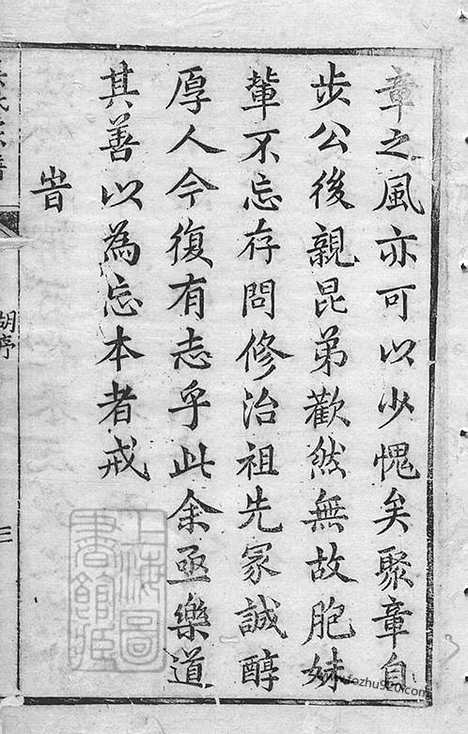 章之風亦可以少愧矣聚章自
步公後親昆弟歡然無故胞妹
輩不忘存問修治祖先冢誠醇
厚人今復有志乎此余亟樂道
其善以為忘本者戒
旹
氏宗譜
胡序
三
上海圖書館藏
fozhu920.com